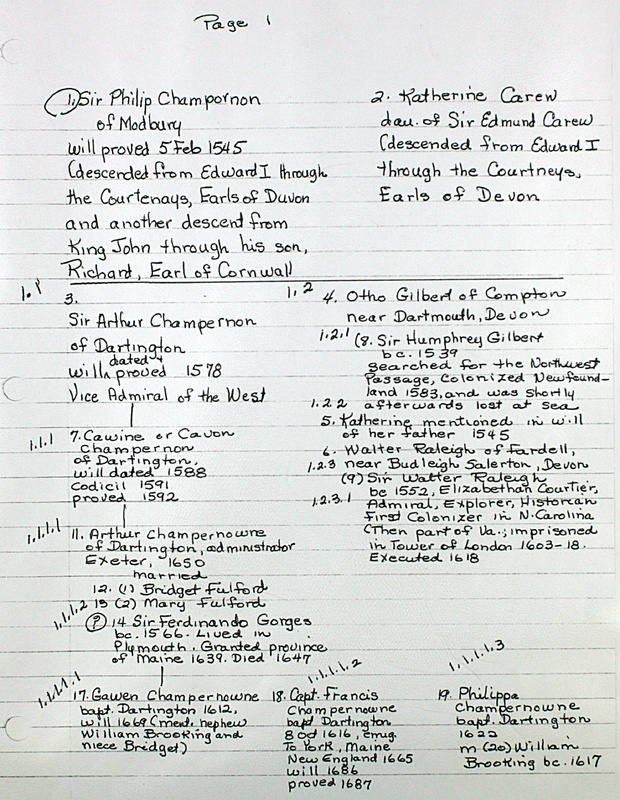 Page 1
1. Sir Philip Champornon
of Modbury
will proved 5 Feb 1545
(descended from Edward I through
the Courtenays, Earls of Duvon
and another descent from
King John through his son,
Richard, Earl of Cornwall
2. Katherine Carew
dau. of Sir Edmund Carew
(descended from Edward I
through the Courtneys,
Earls of Devon
1.1
3.
Sir Arthur Champernon
of Dartington
dated +
will proved 1578
Vice Admiral of the West
1.1.1
7. Cawine or Cavon
Champernon
of Dartington,
will dated 1588
codicil 1591
proved 1592
1.1.1.1
11. Arthur Champernowne
of Dartington, administrator
Exeter, 1650
married
12. (1) Bridget Fulford
13 (2) Mary Fulford
1.1.1.2
? 14 Sir Ferdinando Gorges
bc. 1566. Lived in
Plymouth. Granted province
of Maine 1639. Died 1647
1.2
4. Otho Gilbert of Compton
near Dartmouth, Devon
1.2.1 (8. Sir Humphrey Gilbert
bc. 1539
searched for the Northwest
Passage, colonized Newfound-
land 1583, and was shortly
1.2.2 afterwards lost at sea
5. Katherine mentioned in will
of her father 1545
6. Walter Raleigh of Fardell,
1.2.3 near Budleigh Salerton, Devon
(9) Sir Walter Raleigh
1.2.3.1 bc 1552, Elizabethan Courtier,
Admiral, Explorer, Historian
First Colonizer in N. Carolina
(Then part of Va.; imprisoned
in Tower of London 1603-18.
Executed 1618
1.1.1.1.1
17. Gawen Champernowne
bapt. Dartington 1612,
will 1669 (ment. nephew
William Brooking and
niece Bridget)
1.1.1.1.2
18. Capt. Francis
Champernowne
bapt Dartington
8 Oct 1616, emig.
To York, Maine
New England 1665
will 1686
proved 1687
1.1.1.1.3
19. Philippa
Champernowne
bapt. Dartington
1622
m (20) William
Brooking bc. 1617